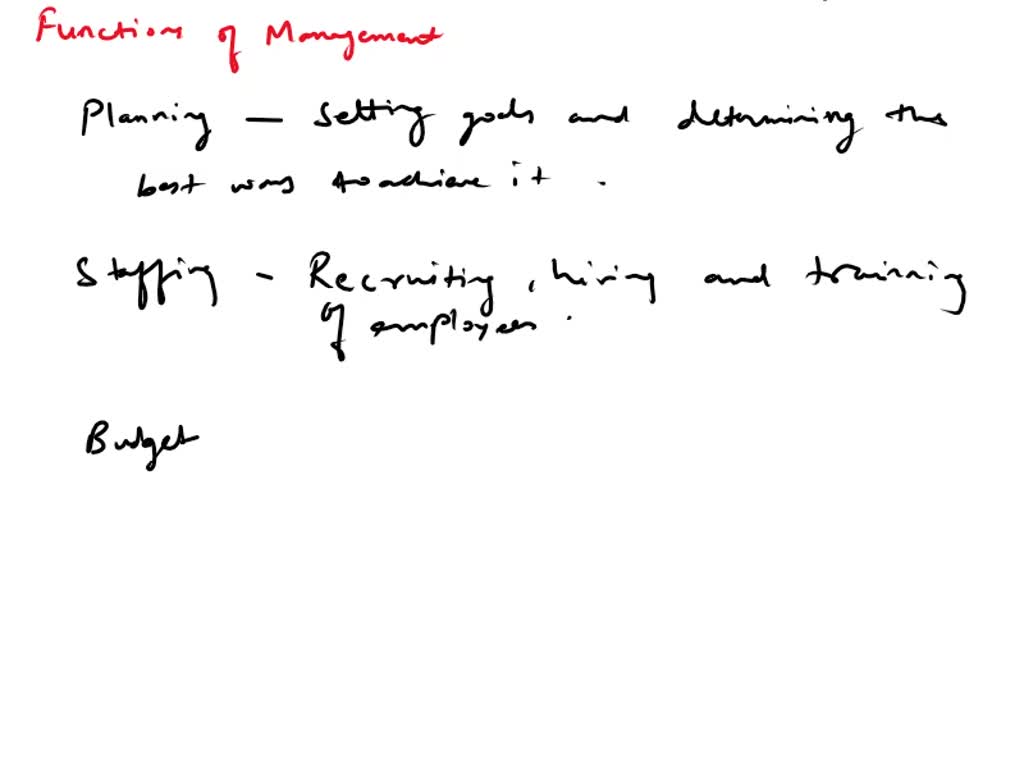 Functions of Management
Planning — Setting goals and determining the
best ways to achieve it .
Staffing - Recruiting , hiring and training
of employees .
Budget